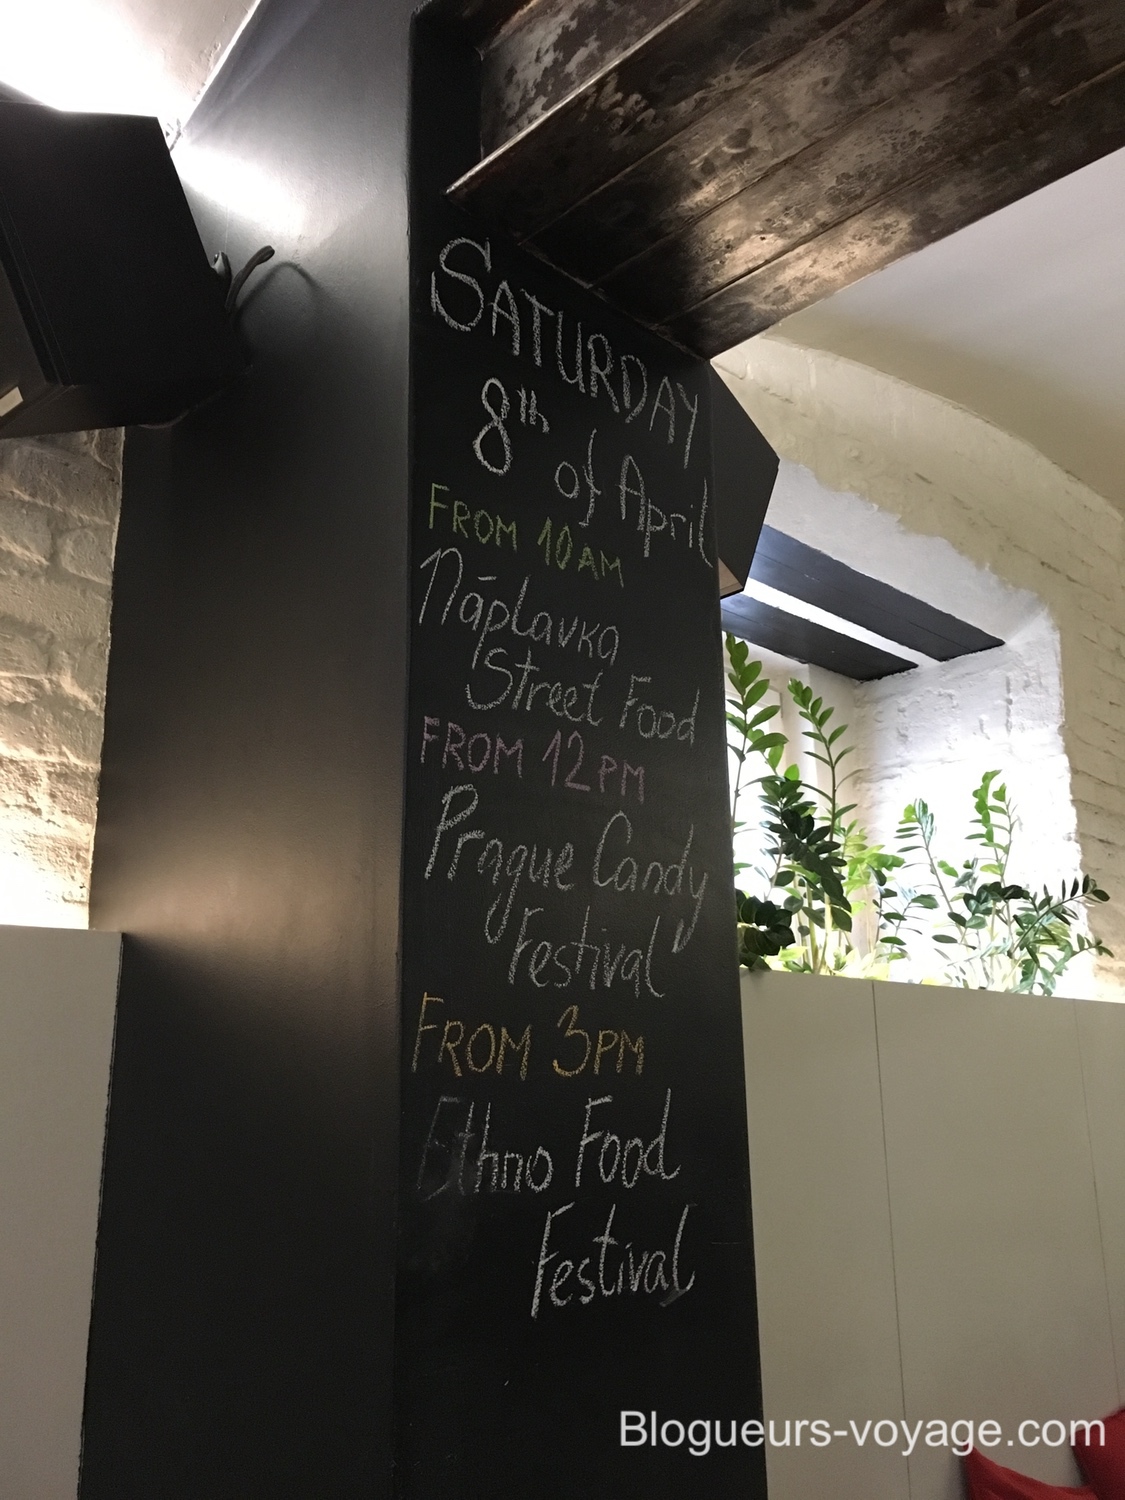 SATURDAY
8th of April
FROM 10AM
Náplavka
Street Food
FROM 12PM
Prague Candy
Festival
FROM 3PM
Ethno Food
Festival
Blogueurs-voyage.com